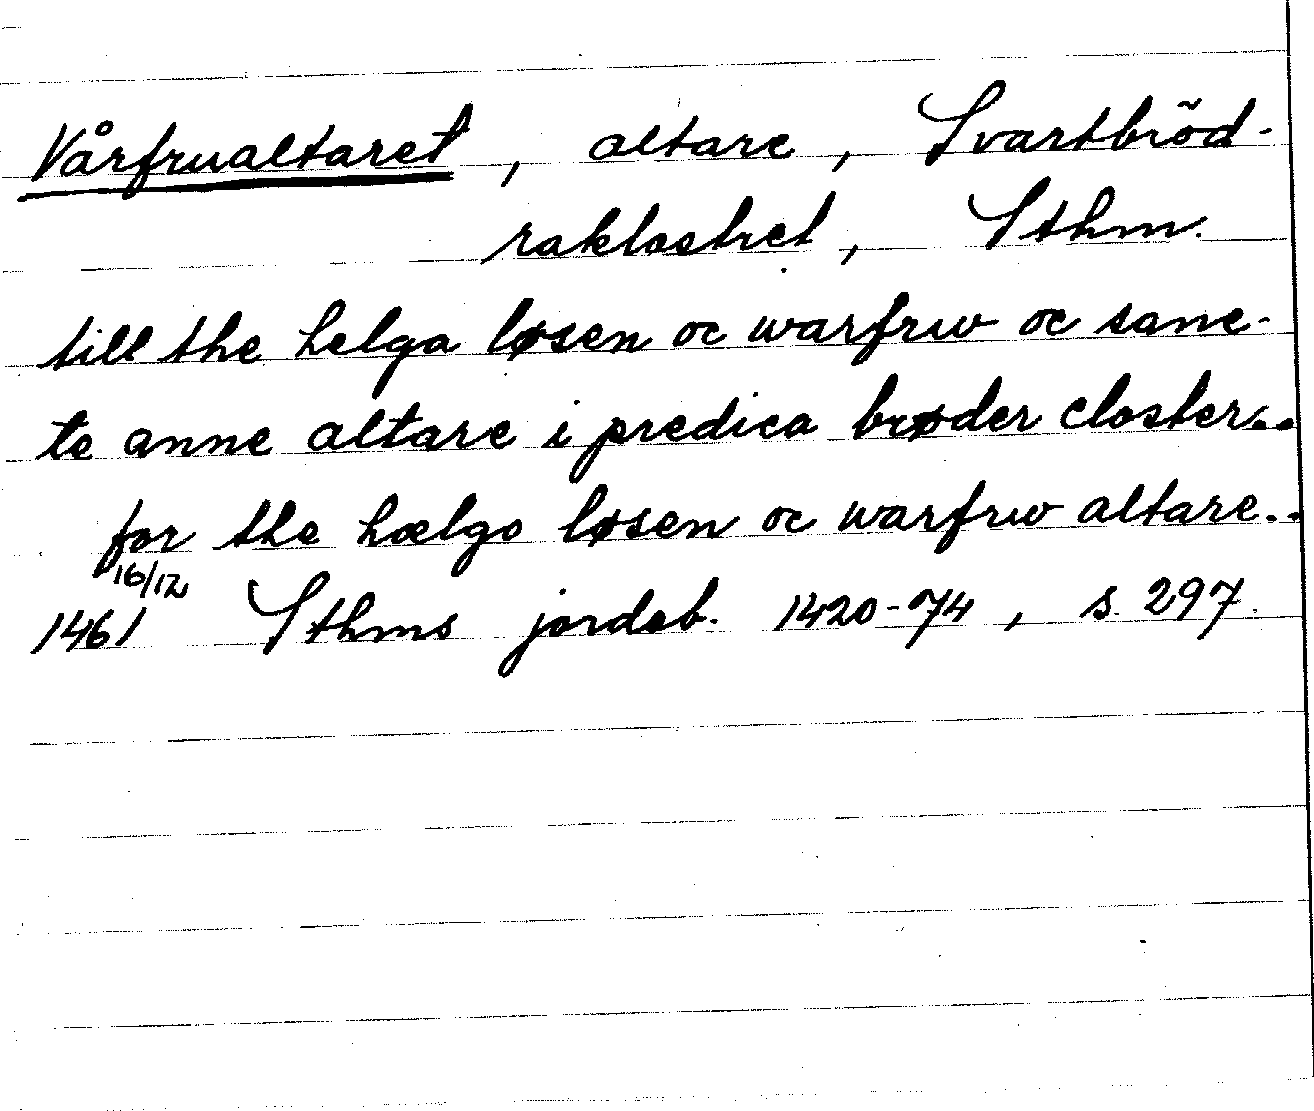 Vårfrualtaret, altare, Svartbröd-
raklostret, Sthm.
till the helga løsen oc warfrw oc sanc-
te anne altare i predica brøder closter..
for the hælgo løsen oc warfrw altare..
16/12
1461 Sthms jordab. 1420-74, s. 297.